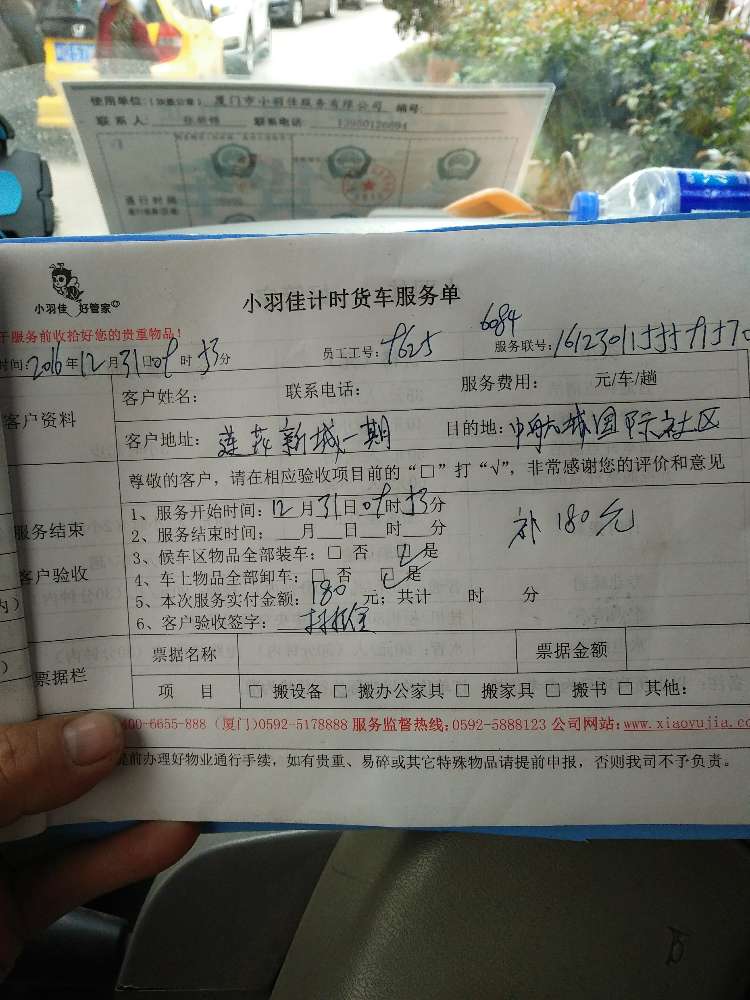 使用单位:(加盖公章) 厦门市小羽佳服务有限公司 编号:
联系人: 联系电话:
通行时间
小羽佳 好管家
小羽佳计时货车服务单
于服务前收拾好您的贵重物品!
6084
时间:2016年12月31日09时53分 员工工号:9625 服务联号:
客户资料 客户姓名: 联系电话: 服务费用: 元/车/趟
客户地址:莲花新城一期 目的地:中航城国际社区
尊敬的客户,请在相应验收项目前的“□”打“√”,非常感谢您的评价和意见
服务结束
客户验收
1、服务开始时间:12月31日09时53分
2、服务结束时间:__月__日__时__分
3、候车区物品全部装车:□ 否 □ 是
4、车上物品全部卸车:□ 否 □ 是
5、本次服务实付金额:180元;共计 时 分
6、客户验收签字:
补180元
票据栏 票据名称 票据金额
项 目 □ 搬设备 □ 搬办公家具 □ 搬家具 □ 搬书 □ 其他:
400-6655-888 (厦门)0592-5178888 服务监督热线:0592-5888123 公司网站:www.xiaoyujia.co
提前办理好物业通行手续,如有贵重、易碎或其它特殊物品请提前申报,否则我司不予负责。